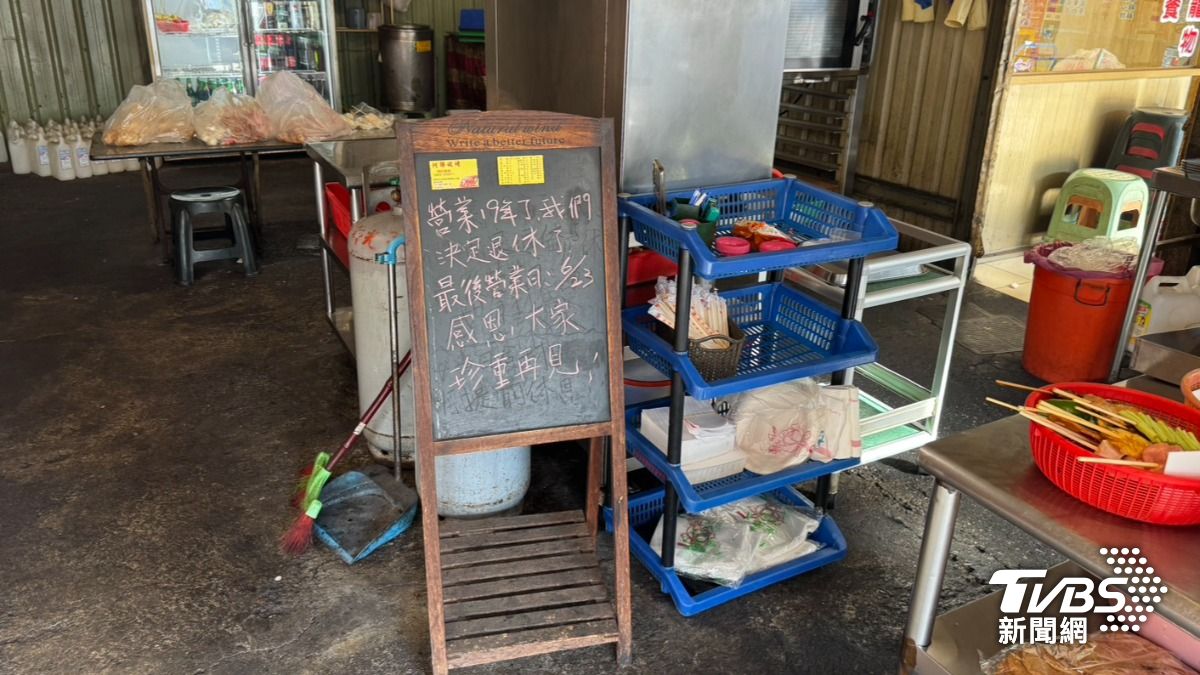 Natural wind
Write a better future
營業19年了,我們
決定退休了
最後營業日:8/23
感恩,大家
珍重再見!
食
物
TVBS
新聞網